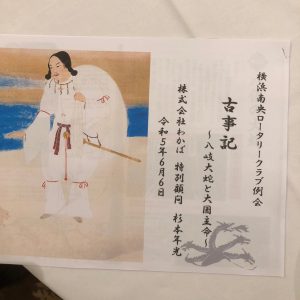 横浜南央ロータリークラブ例会
古事記
～八岐大蛇と大国主命～
株式会社わかば 特別顧問 杉本年光
令和5年6月6日